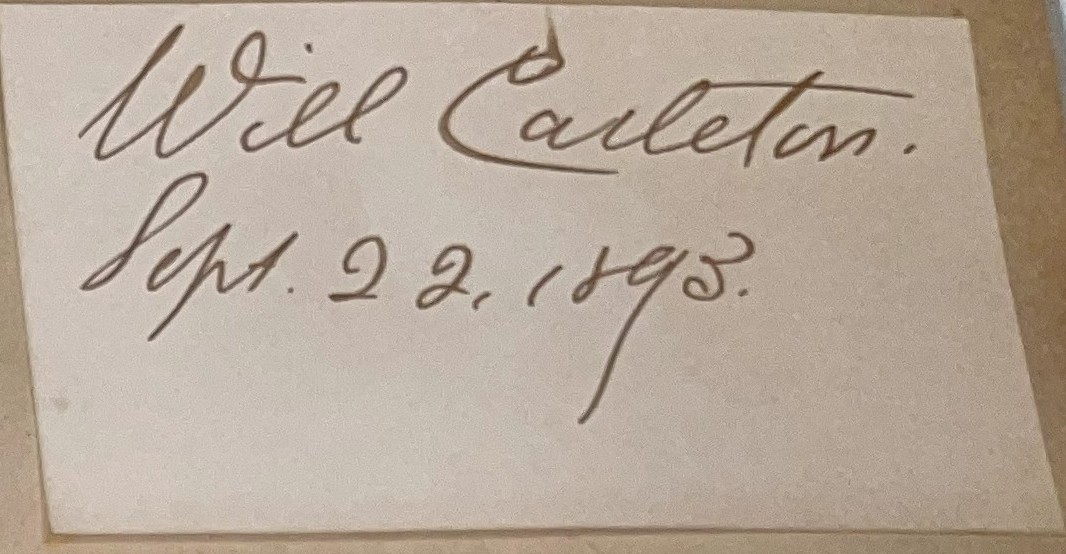 Will Carleton.
Sept. 22, 1893.